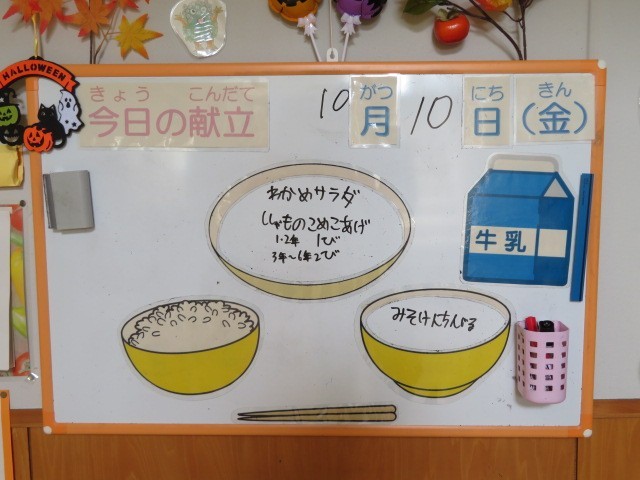 HALLOWEEN
きょう こんだて
今日の献立
10 がつ 10 にち きん
月 日 (金)
わかめサラダ
ししゃものこめこあげ
1・2年 1び
3年〜6年2び
牛乳
みそけんちんじる